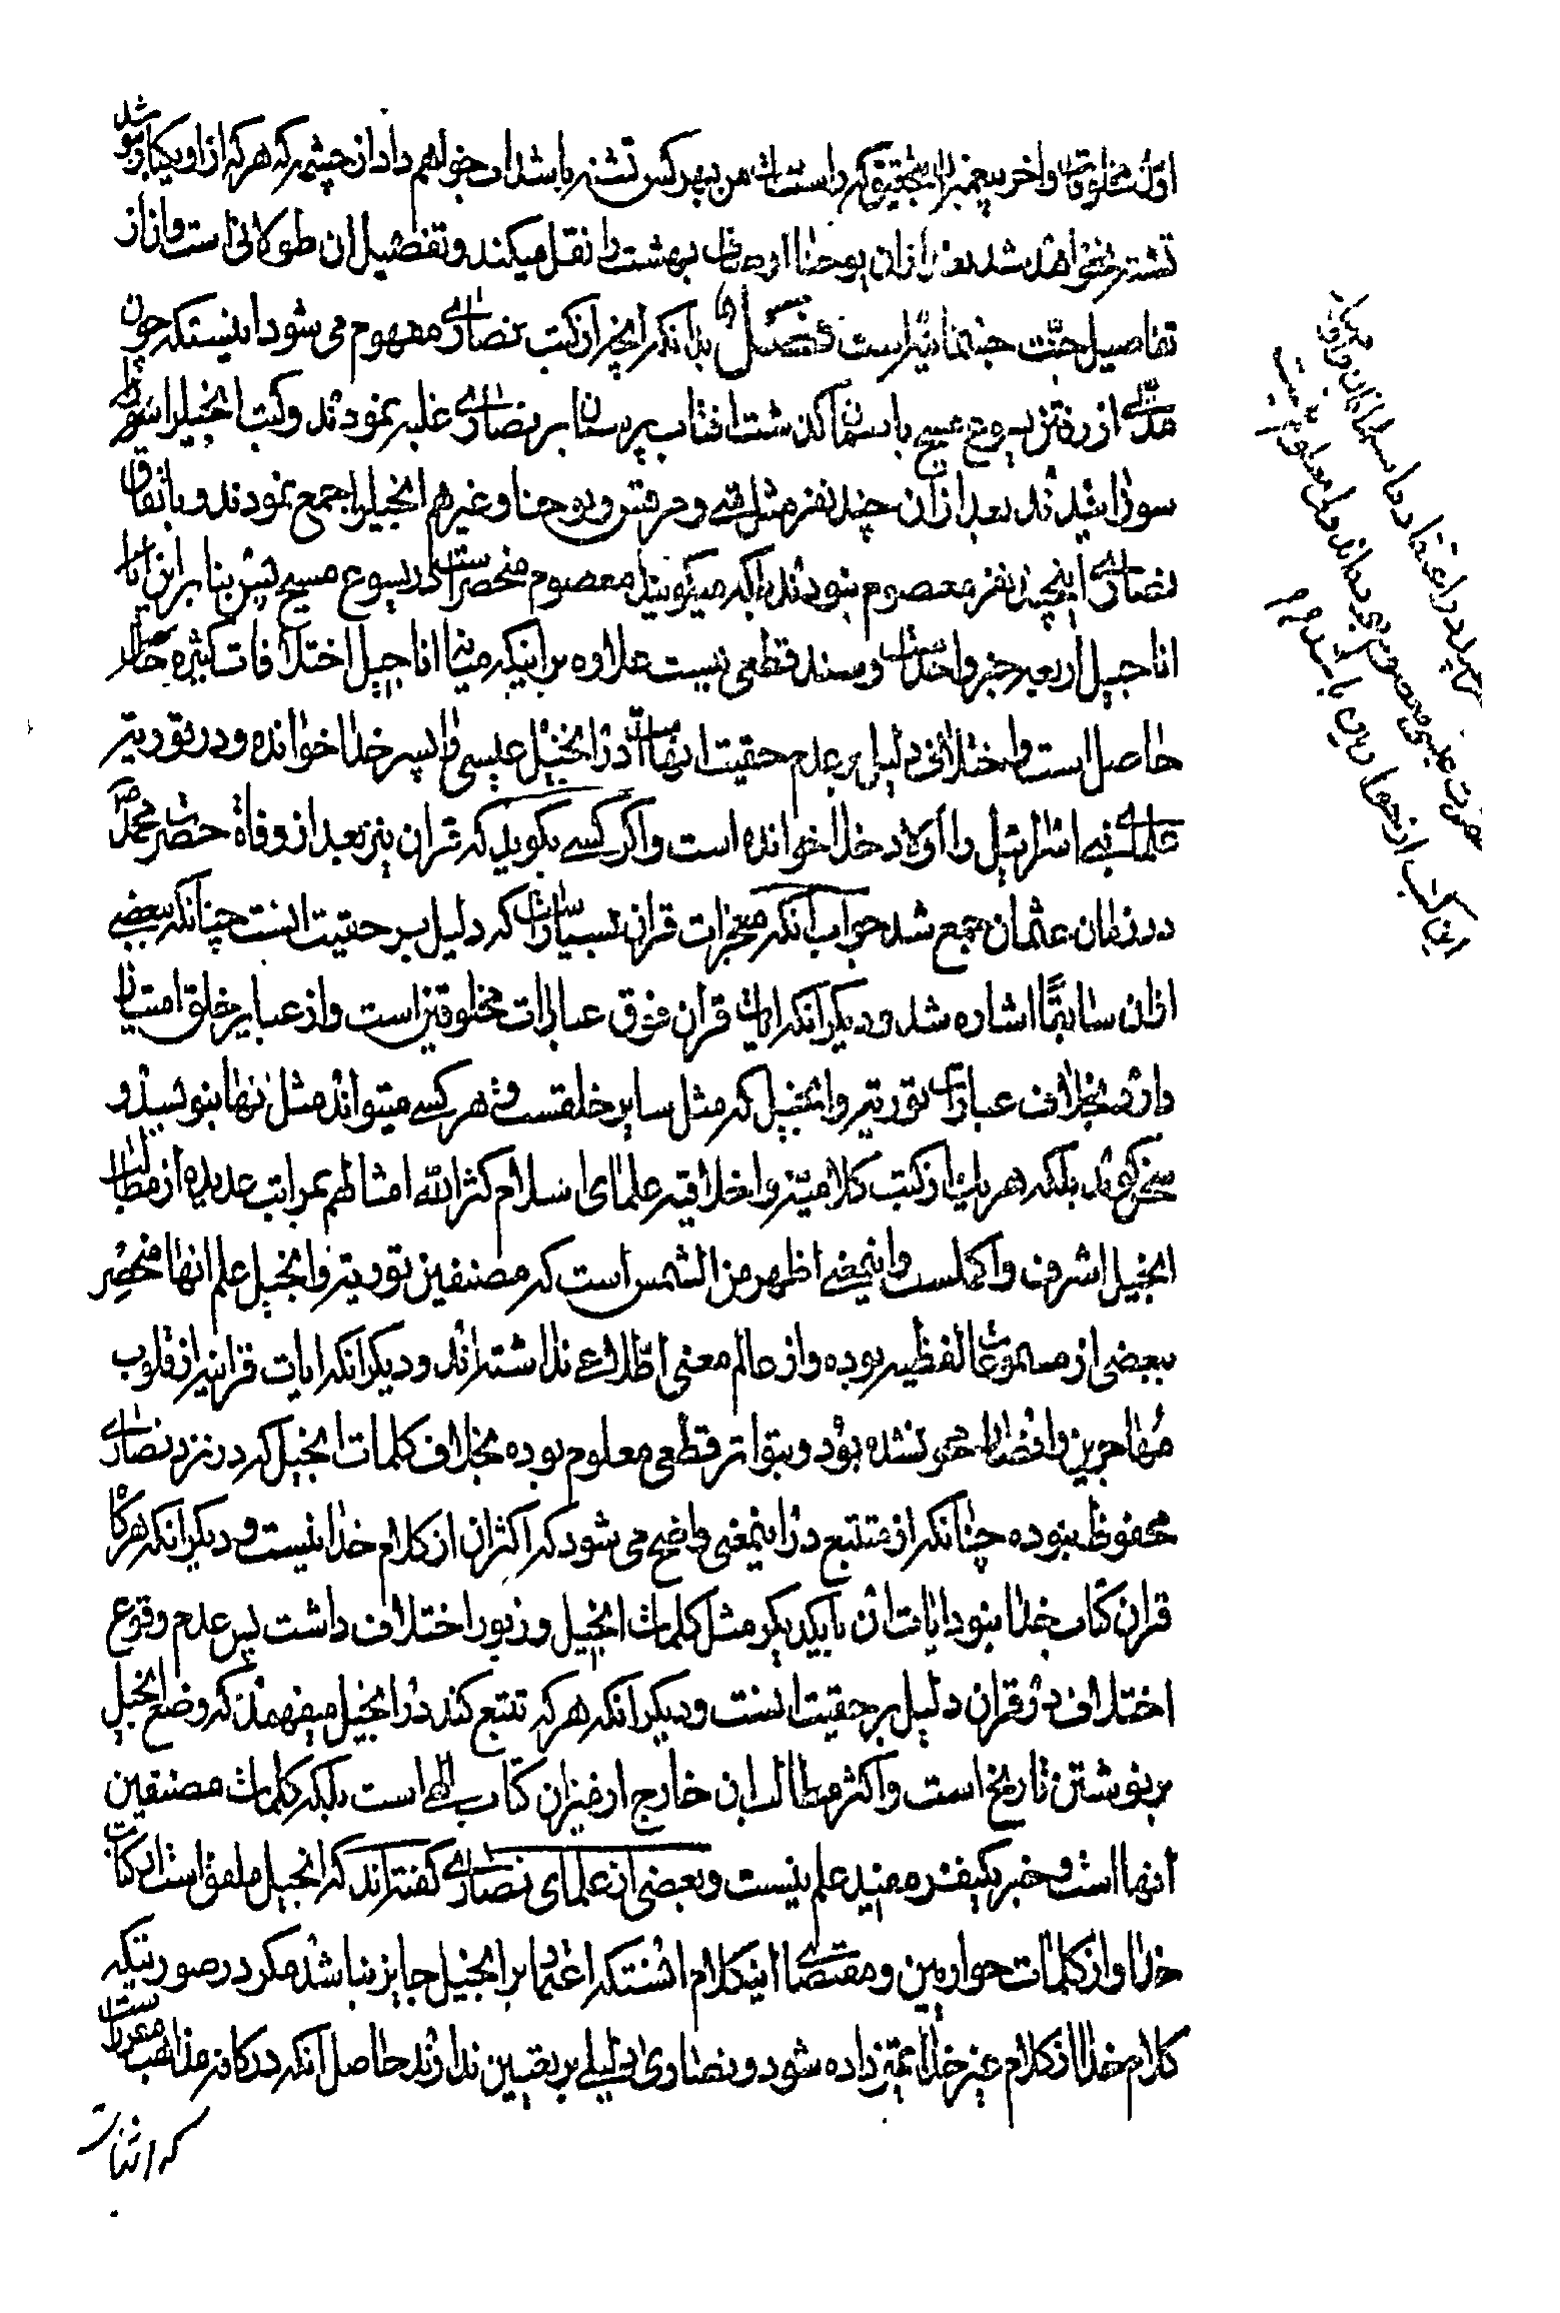 اول مخلوقات و اخر پیغمبران بتحقیق که راست است من بهر کس تشنه باشد اب خواهم داد از چشمه که هر که از او یکبار نوشد
تشنه نخواهد شد بعد ازان یوحنا اوصاف بهشت را نقل میکند و تفصیل ان طولانی است و ان از
تفاصیل جنت جسمانیه است فصل بدانکه انچه از کتب نصاری مفهوم می شود اینستکه چون
مدتی از رفتن یسوع مسیح باسمان گذشت افتاب پرستان بر نصاری غلبه نمودند و کتب انجیل را
سوزانیدند بعد ازان چند نفر مثل متی و مرقش و یوحنا و غیرهم انجیل را جمع نمودند و باتفاق
نصاری اینچند نفر معصوم نبودند بلکه میگویند معصوم منحصر است در یسوع مسیح پس بنابراین
اناجیل اربعه خبر واحد است و سند قطعی نیست علاوه بر اینکه میان اناجیل اختلافات کثیره
حاصل است و اختلاف دلیل بر عدم حقیقت انهاست در انجیل عیسی را پسر خدا خوانده و در توریة
علمای بنی اسرائیل را اولاد خدا خوانده است و اگر کسی بگوید که قران نیز بعد از وفاة حضرت محمد ص
در زمان عثمان جمع شد جواب انکه معجزات قران بسیار است که دلیل بر حقیت انست چنانکه ببعضی
ازان سابقا اشاره شد و دیگر انکه ایات قران فوق عبارات مخلوقین است و از عبایر خلق امتیاز
دارد بخلاف عبارات توریة و انجیل که مثل سایر خلقست و هر کسی میتواند مثل انها بنویسد و
سخن گوید بلکه هر یک از کتب کلامیه و اخلاقیه علمای اسلام کثر الله امثالهم بمراتب عدیده از مطالب
انجیل اشرف و اکملست و اینمعنی اظهر من الشمس است که مصنفین توریة و انجیل علم انها منحصر
ببعضی از مسموعات لفظیه بوده و از عالم معنی اطلاعی نداشته اند و دیگر انکه ایات قرانیه از قلوب
مهاجرین و انصار محو نشده بود و بتواتر قطعی معلوم بوده بخلاف کلمات انجیل که در نزد نصاری
محفوظ نبوده چنانکه از تتبع در اینمعنی واضح می شود که اکثر ان از کلام خدا نیست و دیگر انکه هرگاه
قران کتاب خدا نبود ایات ان با یکدیگر مثل کلمات انجیل و زبور اختلاف داشت پس عدم وقوع
اختلاف در قران دلیل بر حقیت انست و دیگر انکه هر که تتبع کند در انجیل میفهمد که وضع انجیل
بر نوشتن تاریخ است و اکثر مطالب ان خارج از میزان کتاب الهی است بلکه کلمات مصنفین
انها است و خبر یکنفر مفید علم نیست و بعضی از علمای نصاری گفته اند که انجیل ملفق است از کتاب
خدا و از کلمات حواریین و مقتضای اینکلام انستکه اعتماد بر انجیل جایز نباشد مگر در صورتیکه
کلام خدا از کلام غیر خدا تمیز داده شود و نصاری دلیلی بر تعیین ندارند حاصل انکه در کافه مذاهب معروف است
که اثبات
این کتب از حواریین باشد